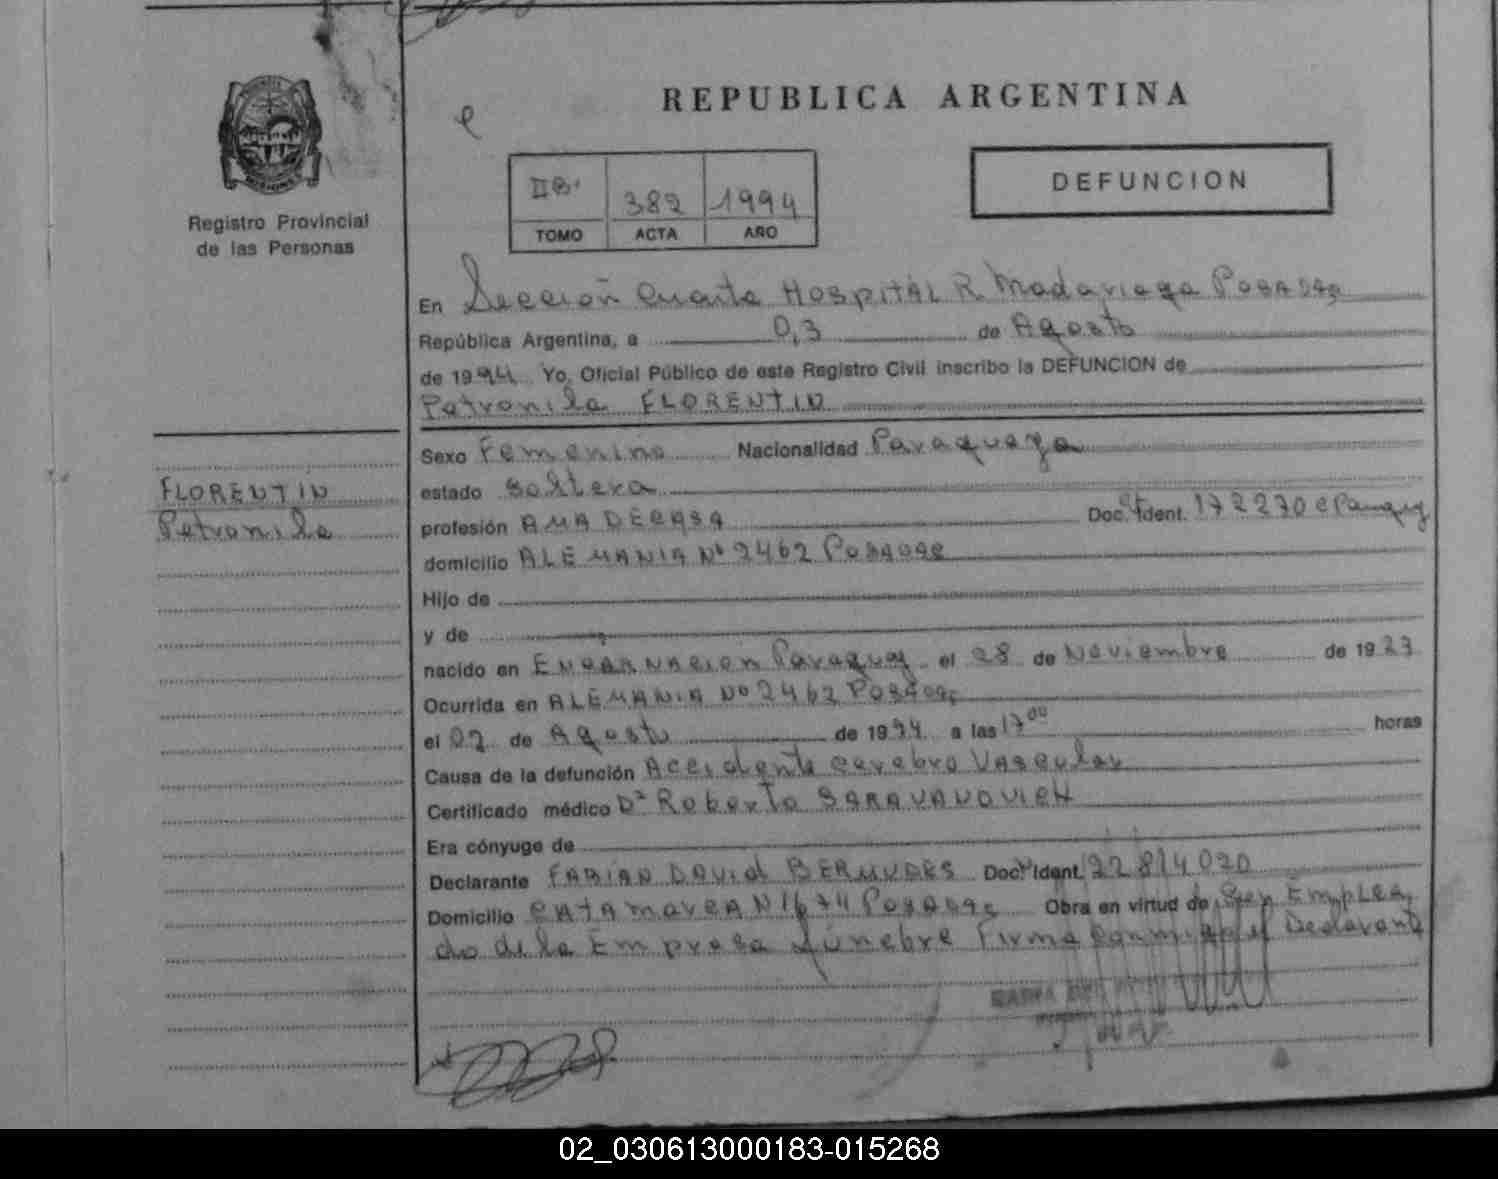 REPUBLICA ARGENTINA
DEFUNCION
IIB. 382 1994
TOMO ACTA AÑO
Registro Provincial
de las Personas
En Sección Cuarta HOSPITAL R Madariaga POSADAS
República Argentina, a 03 de Agosto
de 1994 Yo, Oficial Público de este Registro Civil inscribo la DEFUNCION de
Petronila FLORENTIN
FLORENTIN
Petronila
Sexo Femenino Nacionalidad Paraguaya
estado Soltera
profesión AMA DE CASA Doc. Ident. 172270 Paraguay
domicilio ALEMANIA Nº 2462 POSADAS
Hijo de
y de
nacido en ENCARNACION Paraguay el 28 de Noviembre de 1923
Ocurrida en ALEMANIA Nº 2462 POSADAS
el 02 de Agosto de 1994 a las 17 00 horas
Causa de la defunción Accidente cerebro Vascular
Certificado médico Dr Roberto SARAVANOVICH
Era cónyuge de
Declarante FABIAN David BERMUDES Doc. Ident. 22814020
Domicilio CATAMARCA N 1674 POSADAS Obra en virtud de Ser Emplea
do de la Empresa fúnebre Firma conmigo el Declarante
02_030613000183-015268